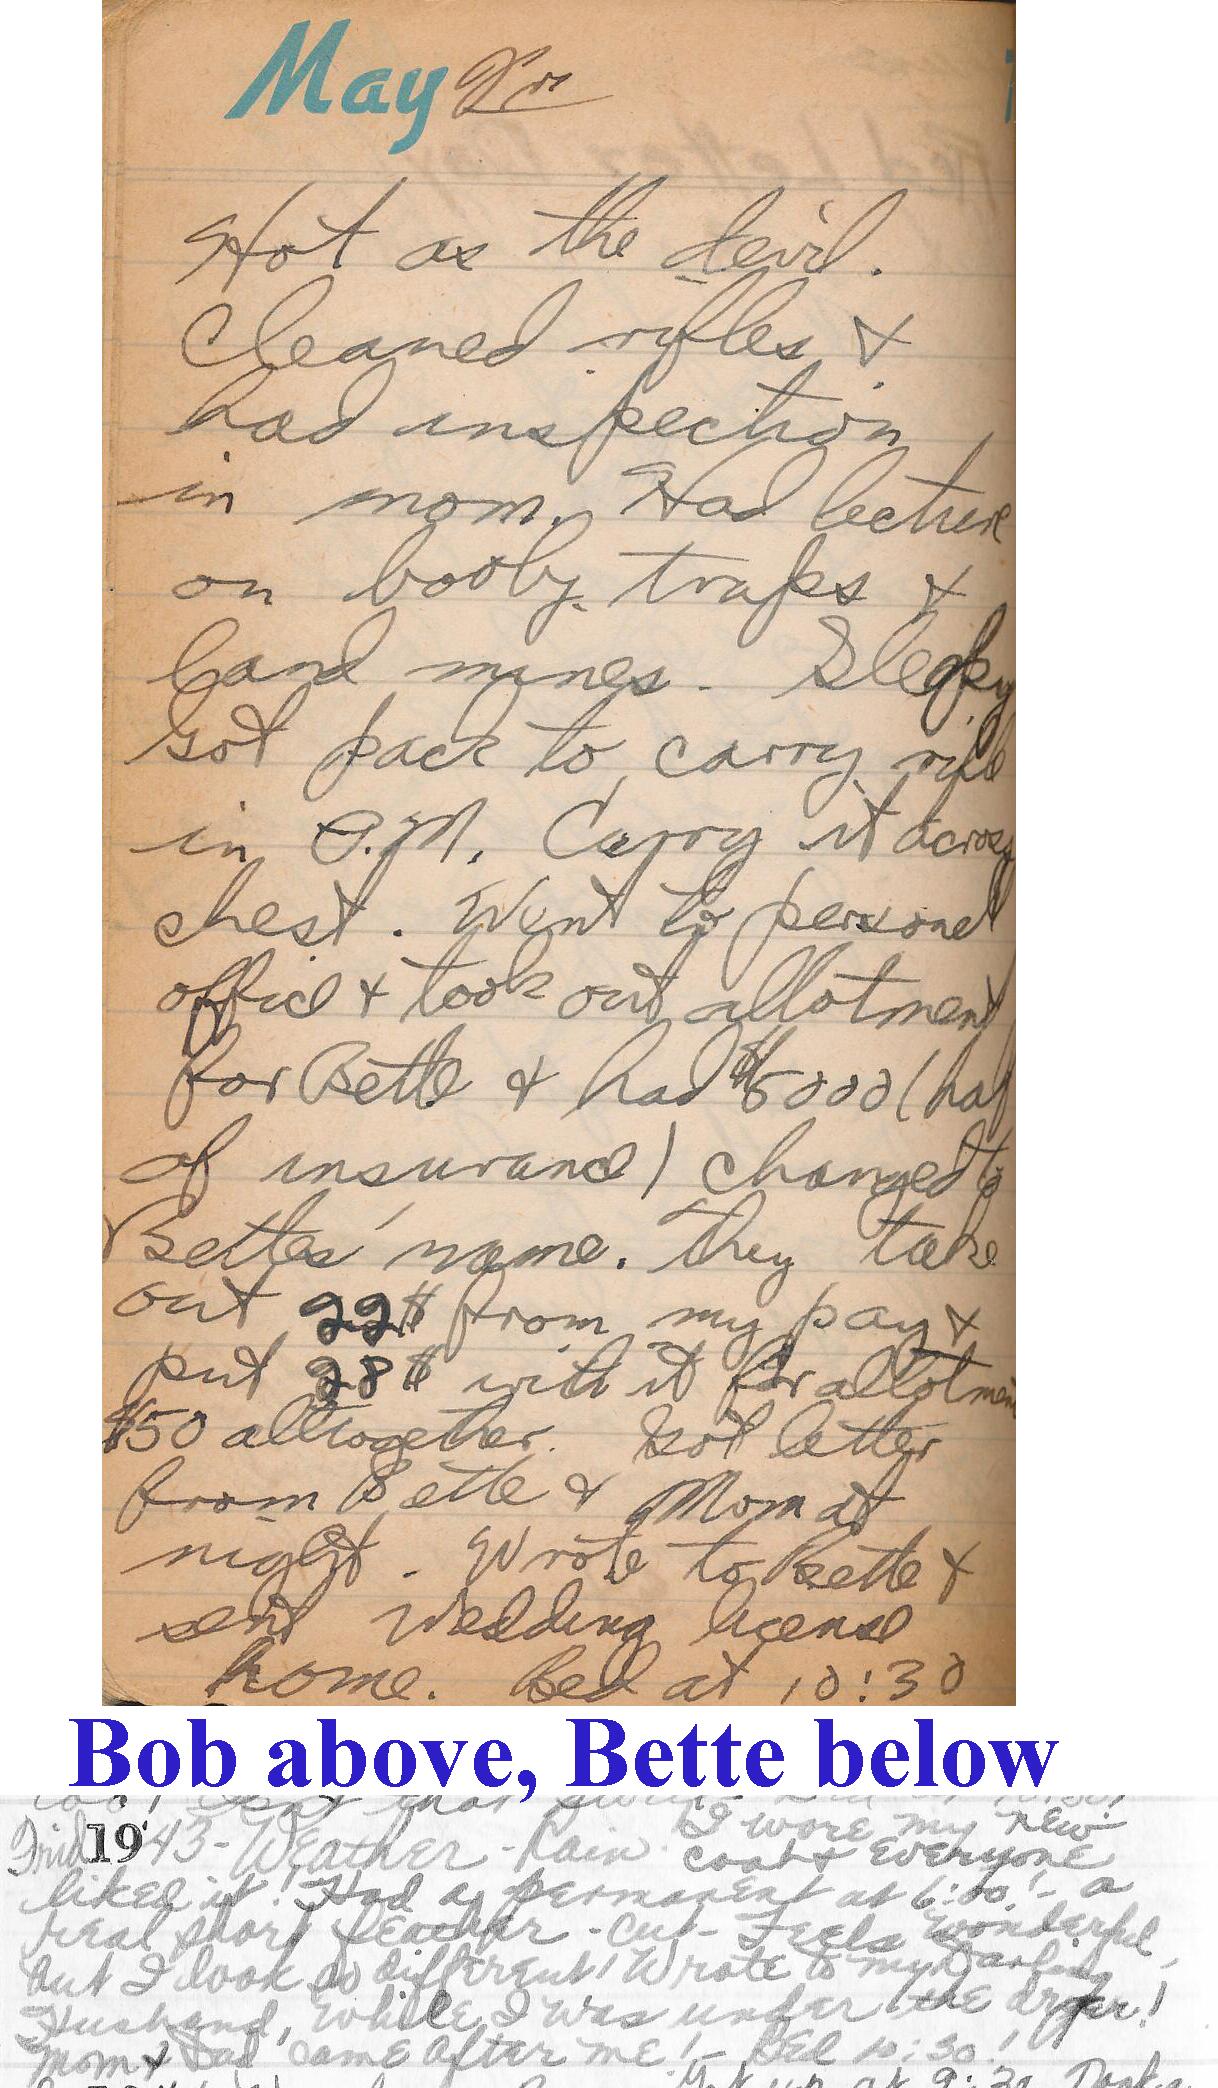 May
Hot as the devil.
Cleaned rifles &
had inspection
in morn. Had lecture
on booby traps &
land mines. Sleepy
got pack to carry rifle
in P.M. Carry it across
chest. Went to personel
office & took out allotment
for Bette & had $5000 (half
of insurance) changed to
Bettes' name. They take
out 22$ from my pay &
put 28$ with it for allotment
$50 alltogether. Got letter
from Bette & Mom at
night. Wrote to Bette &
sent wedding license
home. Bed at 10:30
Bob above, Bette below
too! Isn't that
Frid 1943 - Weather - Rain. I wore my new
coat & everyone
liked it! Had a permanent at 6:00! - a
real short feather - cut - Feels wonderful,
but I look so different! Wrote to my Darling
Husband, while I was under the dryer!
Mom & Dad came after me! - Bed 10:30!
Got up at 9:30